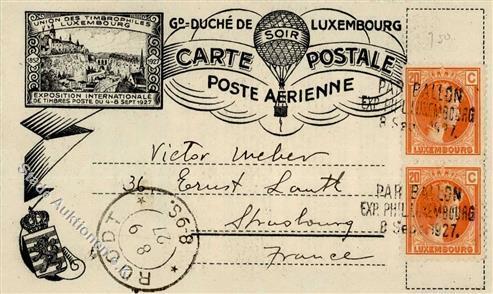 UNION DES TIMBROPHILES
LUXEMBOURG
1852 1927
EXPOSITION INTERNATIONALE
DE TIMBRES POSTE DU 4-8 SEPT 1927
Gᴰ-DUCHÉ DE LUXEMBOURG
SOIR
CARTE POSTALE
POSTE AÉRIENNE
750
20 C
LUXEMBOURG
PAR BALLON
EXP. PHIL. LUXEMBOURG
8 Sept. 1927.
20 C
LUXEMBOURG
PAR BALLON
EXP. PHIL. LUXEMBOURG
8 Sept. 1927.
Victor Weber
36 Ernst Lauth
Strasbourg
France
RODT
8-9S.
27
8 9